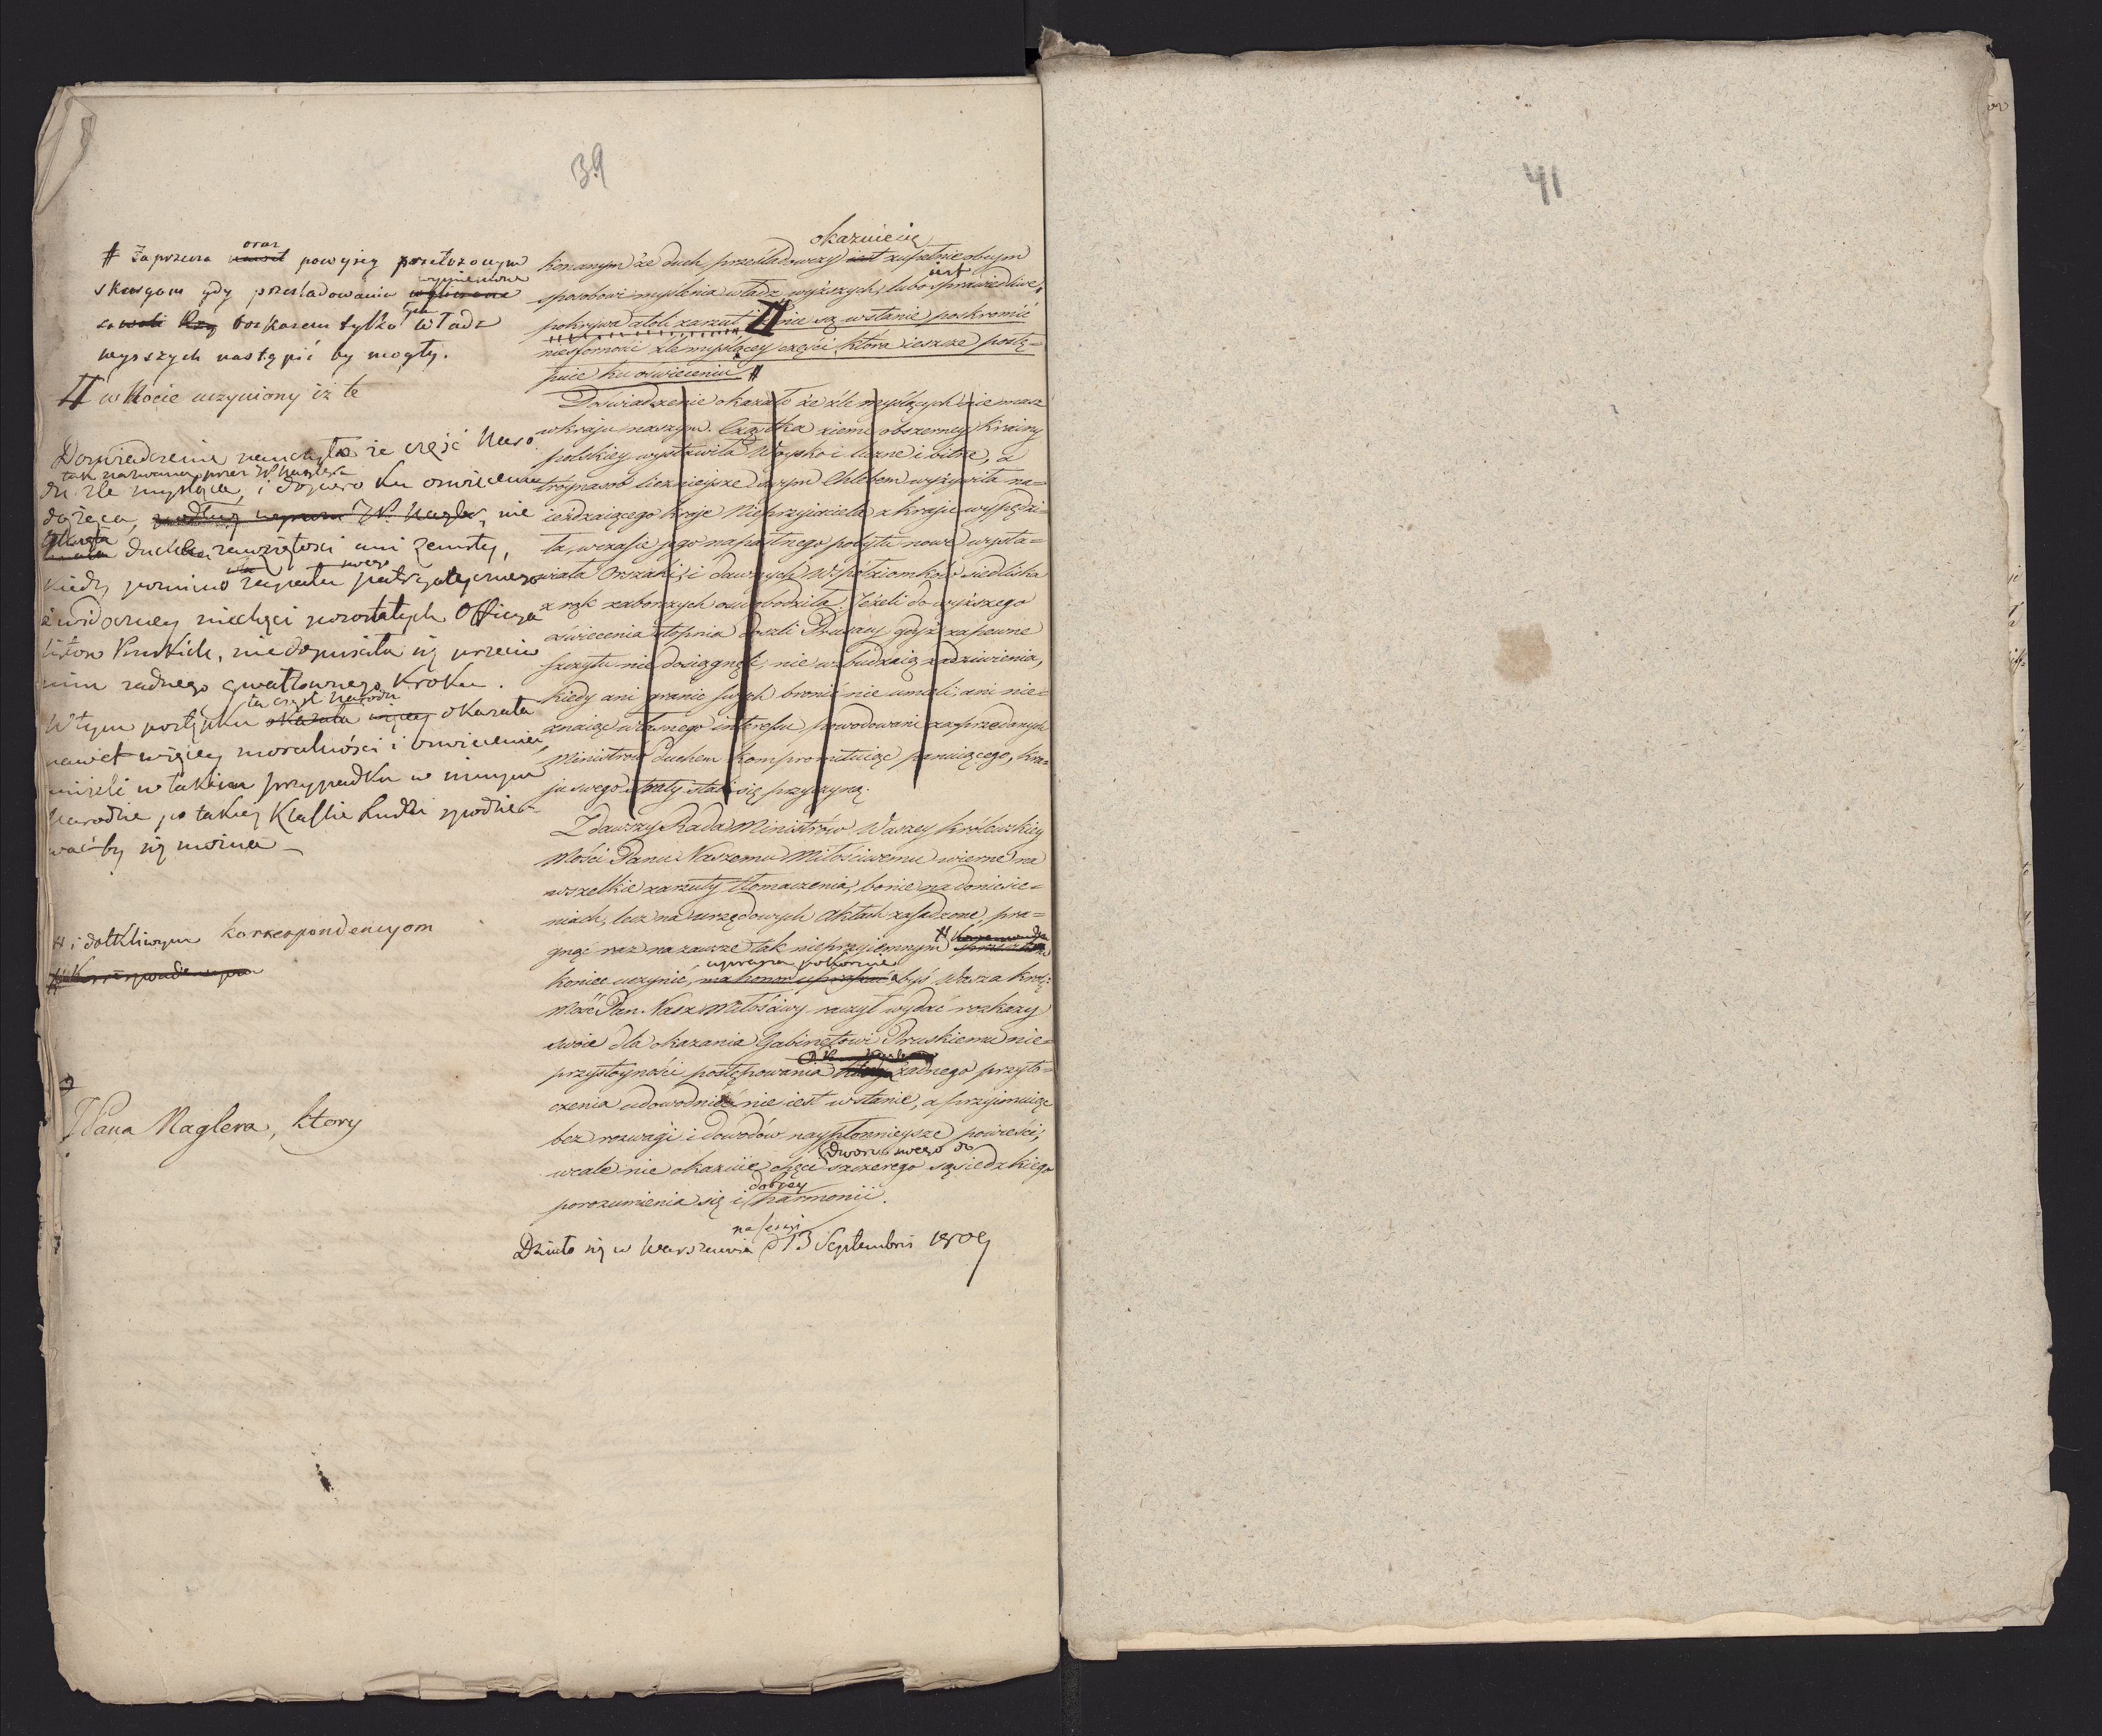 39
# Zaprzecza oraz powyżey przełożonym
skargom gdy prześladowania wymienione
rozkazem tylko tych Władz
wyższych nastąpić by mogły.
w Nocie uczyniony iż te
Doświadczenie nauczyło że część Naro
du tak nazwana przez W. Naglera źle myśląca, i dopiero ku oświeceniu
dążąca, W. Nagler, nie
ducha zawziętości ani zemsty,
kiedy pomimo zapału swego patryotycznego
i widoczney niechęci pozostałych Officya
listow Pruskich, nie dopuściła się przeciw
nim żadnego gwałtownego kroku.
W tym postępku ta część Narodu okazała więcey okazała
nawet więcey moralności i oświecenia
niżeli w takim przypadku w innym
Narodzie po takiey Klassie Ludzi spodzie-
wać by się można
# i dotkliwym korrespondencyom
Korrespondencyom
Pana Naglera, ktory
okazuie się
konanym że duch prześladowczy iest zupełnie obcym
sposobowi myślenia władz wyższych, lubo iest sprawiedliwe,
pokrywa atoli zarzut nie są wstanie poskromić
niesforności źle myślącey części, która ieszcze postę=
puie ku oświeceniu #
Doświadzenie okazało że źle myślących nie masz
w kraju naszym. Cząstka ziemi obszerney krainy
polskiey wystawiła Woysko i liczne i bitne, a
tróynasob licznieysze swym Chlebem wyżywiła na=
ieżdzaiącego kraje Nieprzyjaciela z kraju wypędzi=
ła, w czasie jego napastnego pobytu nowe wysta=
wiała Orszaki, i dawnych Wspołziomkow siedliska
z rąk zaborczych oswobodziła. Jeżeli do wyższego
oświecenia stopnia doszli Prusacy gdyż zapewne
szczytu nie dosięgnęli, nie wzbudzaią zadziwienia,
kiedy ani granic swych bronić nie umieli, ani nie=
znaiąc własnego interessu, powodowani zaprzedanych
Ministrow duchem kompromituiąc panuiącego, kra=
ju swego utraty stali się przyczyną.
Zdawszy Rada Ministrów Waszey Królewskiey
Mości Panu Naszemu Miłościwemu wierne na
wszelkie zarzuty tłomaczenia, bo nie na doniesie=
niach, lecz na urzędowych Aktach zasadzone, pra=
gnąc raz na zawsze tak nieprzyiemnym #
koniec uczynić, uprasza pokornie ma honor upraszać abyś Wasza Kró:
Mość Pan Nasz Miłościwy raczył wydać rozkazy
swoie dla okazania Gabinetowi Pruskiemu nie=
przystoyności postępowania żadnego przyto=
czenia udowodnić nie iest wstanie, a przyimuiąc
bez rozwagi i dowodów naypłonnieysze powieści,
wcale nie okazuie chęci dworu swego do szczerego sąsiedzkiego
porozumienia się i dobrey harmonii.
Działo się w Warszawie na sessyi d 13 Septembris 1809
41